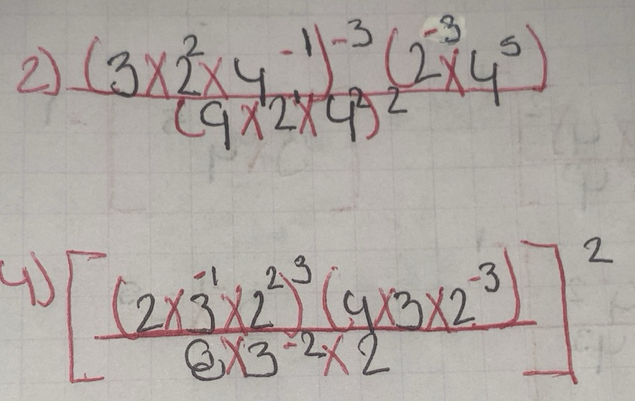 2) (3×2²×4⁻¹)⁻³ (2⁻³×4⁵)
(9×2¹×4²)²
4) [(2×3⁻¹×2²)³ (9×3×2⁻³)]²
8×3⁻²×2